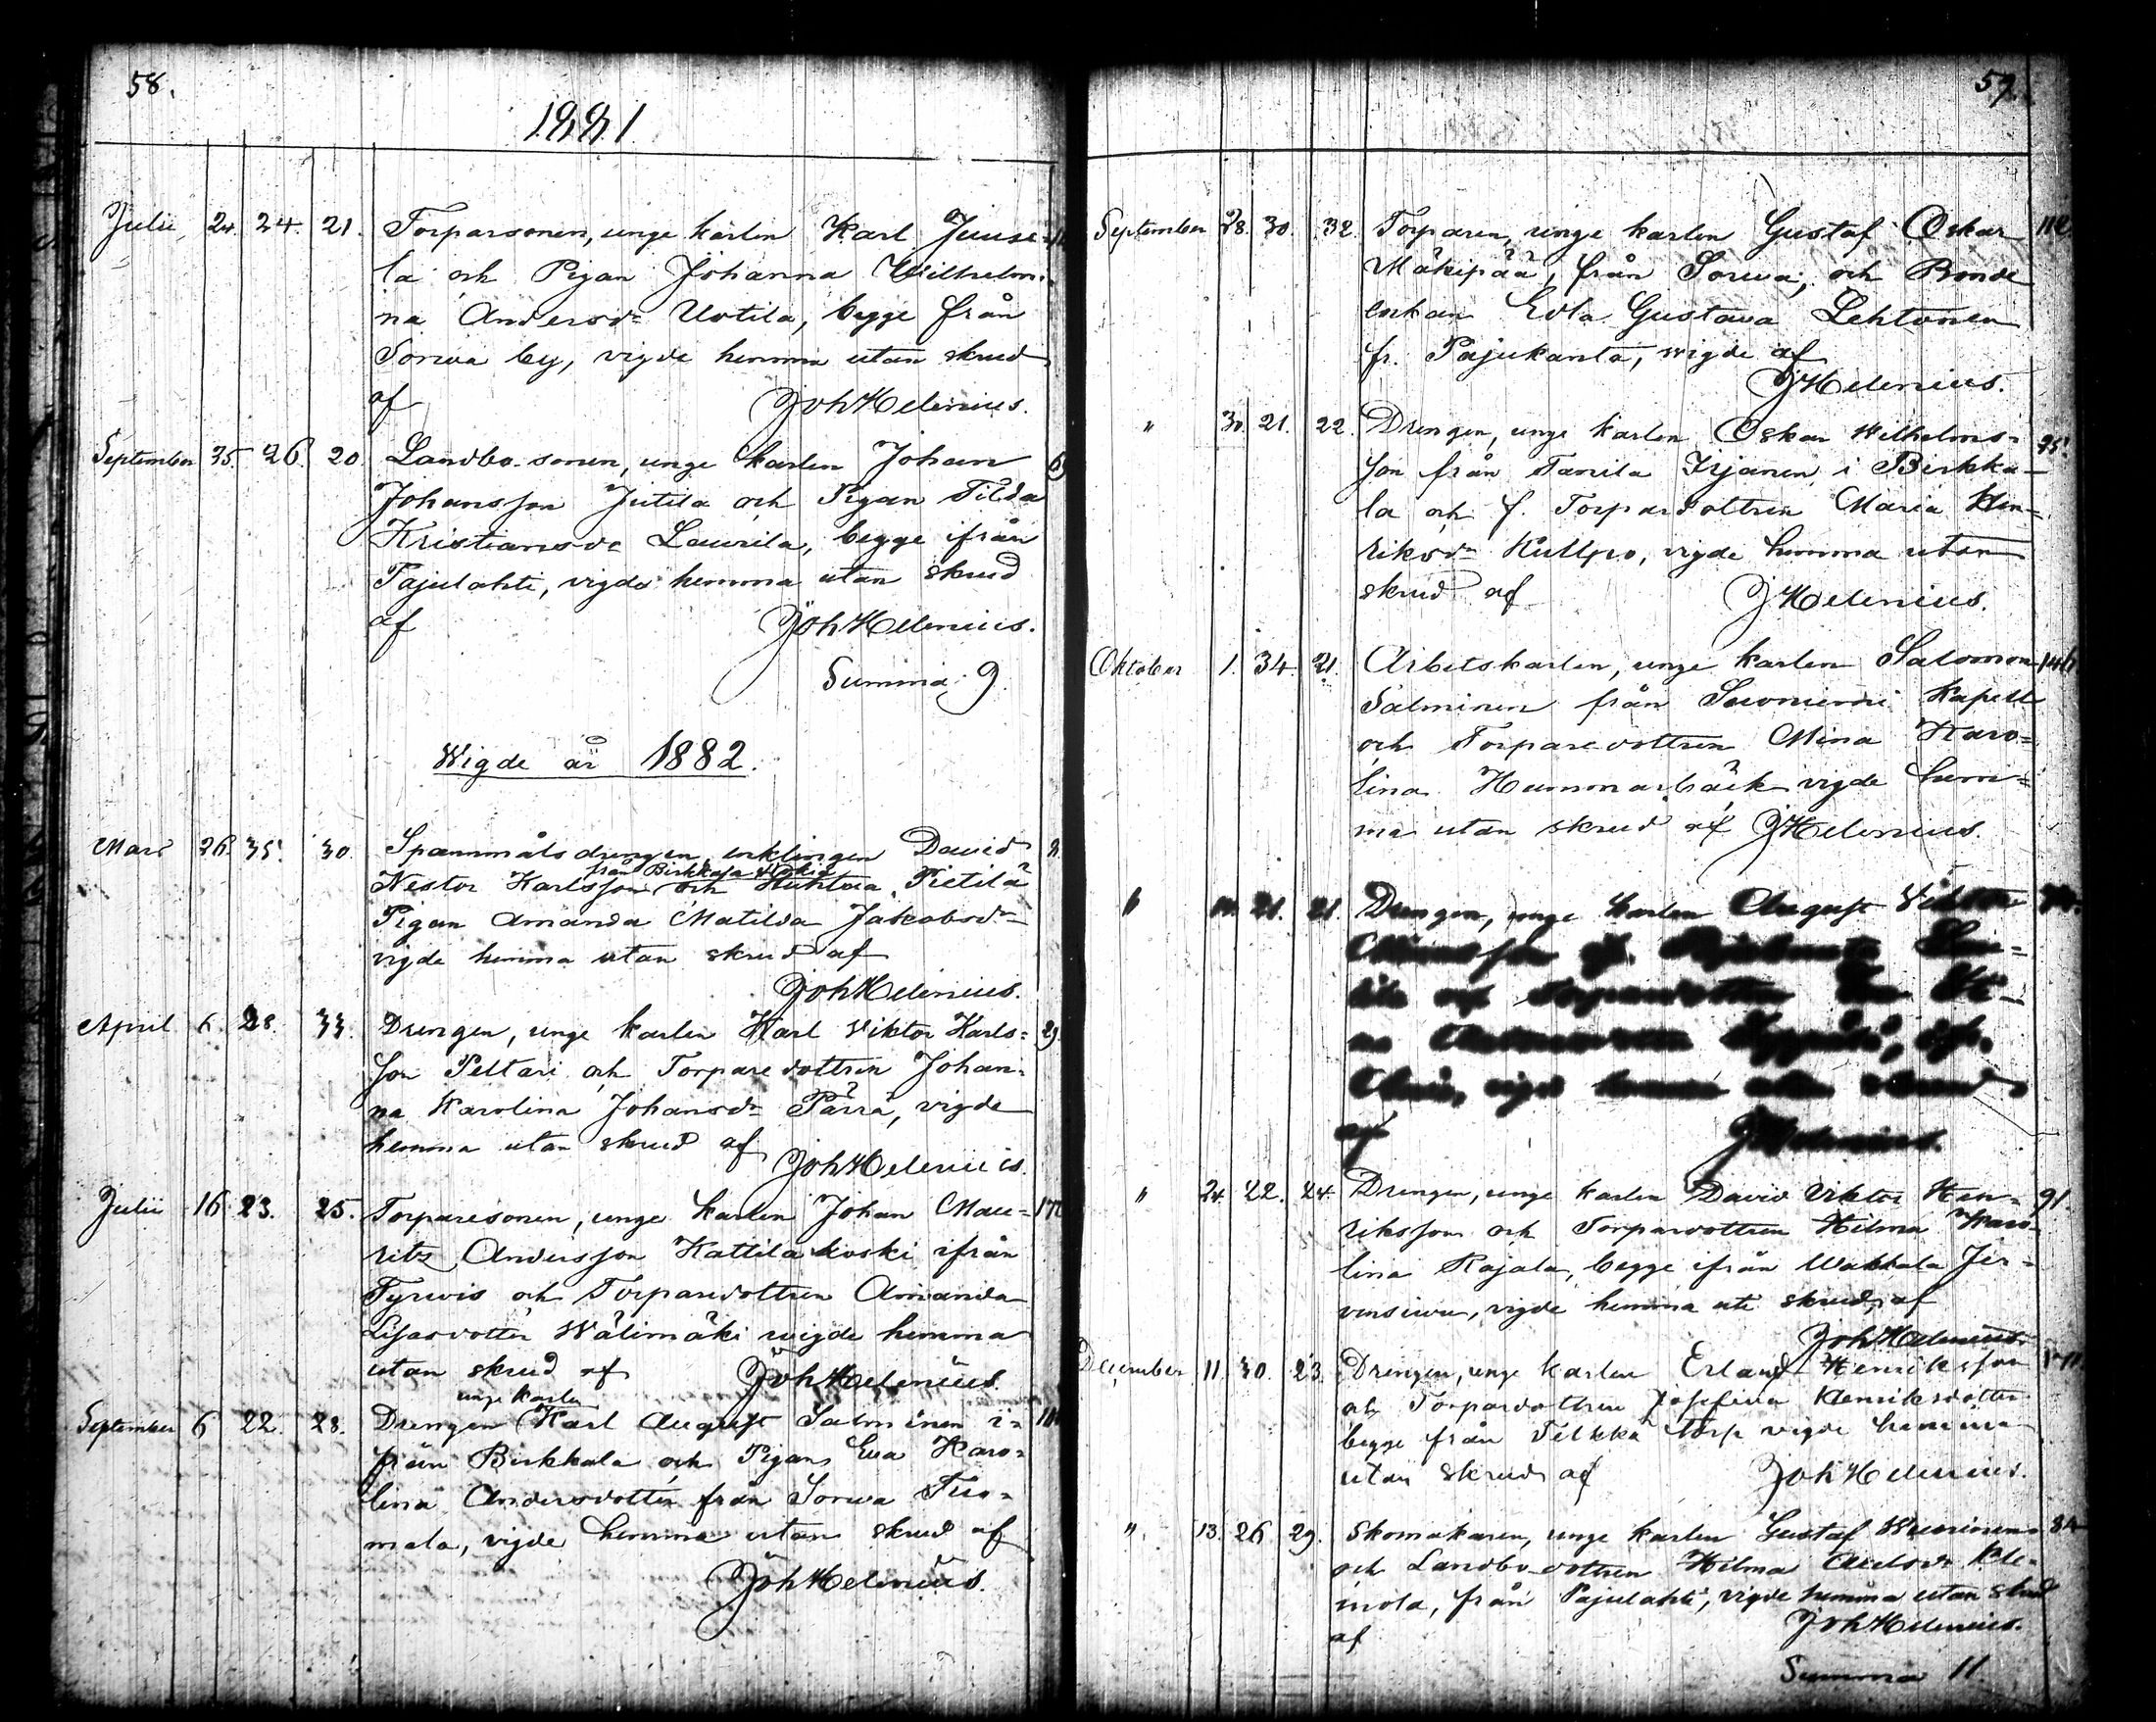 58.
1881
Julii 24. 24. 21. Torparsonen, unge karlen Karl Juuse-
la och Pigan Johanna Wilhelmi-
na Andersdr Uotila, begge från
Sorwa by, vigde hemma utan skrud
af JohHelenius.
September 25 26. 20. Landbo-sonen, unge karlen Johan
Johansson Jutila och Pigan Tilda
Kristiansdr Laurila, begge ifrån
Pajulahti, vigde hemma utan skrud
af JohHelenius.
Summa 9.
Wigde år 1882.
Mars 26. 35. 30. Spannmålsdrengen, enklingen David
från Birkkala
Nestor Karlsson och Huhtaa Pietilä
Pigan Amanda Matilda Jakobsdr
vigde hemma utan skrud af
JohHelenius.
April 6. 28. 33. Drengen, unge karlen Karl Viktor Karls= 29.
son Peltari och Torparedottren Johan=
na Karolina Johansdr Pärrä, vigde
hemma utan skrud af
JohHelenius.
Julii 16 23. 25. Torparesonen, unge karlen Johan Mau=
ritz Andersson Kattilakoski ifrån
Tyrwis och Torparedottren Amanda
Lisasdotter Wälimäki wigde hemma
utan skrud af JohHelenius.
unge karlen
September 6 22. 28. Drengen Karl August Salminen i=
från Birkkala och Pigan Eva Karo=
lina Andersdotter från Sorwa Tuo=
mala, vigde hemma utan skrud af
JohHelenius.
59.
September 28. 30. 32. Torparen, unge karlen Gustaf Oskar 112
Mäkipää, från Sorwa, och Bonde
enkan Edla Gustava Lehtonen
fr. Pajukanta, wigde af
JHelenius.
" 30. 21. 22. Drengen, unge karlen Oskar Wilhelms= 95.
son från Tanila Irjanen i Birkka-
la och f. Torpardottren Maria Hen=
riksdr Kullpo, vigde hemma utan
skrud af JHelenius.
Oktober 1. 34. 21. Arbetskarlen, unge karlen Salomon 146
Salminen från Suoniemi Kapell
och Torparedottren Mina Karo=
lina Hummarbäck vigde hem=
ma utan skrud af JHelenius.
" 21. 21. Drengen, unge karlen August Viktor
af JHelenius.
" 24. 22. 24. Drengen, unge karlen David Viktor Hen= 91.
riksson och Torpardottren Hilma Karo=
lina Rajala, begge ifrån Wakkala Jer=
vensiwu, vigde hemma uti skrud, af
JohHelenius.
December 11. 30. 23. Drengen, unge karlen Erland Henriksson
och Torpardottren Josefina Henriksdotter
begge från Telkkä torp vigde hemma
utan skrud af JohHelenius.
" 13. 26 29. Skomakaren, unge karlen Gustaf Wuorinen
och Landbo-dottren Hilma Axelsdr Kle=
mola, från Pajulahti, vigde hemma utan skrud
af JohHelenius.
Summa 11.